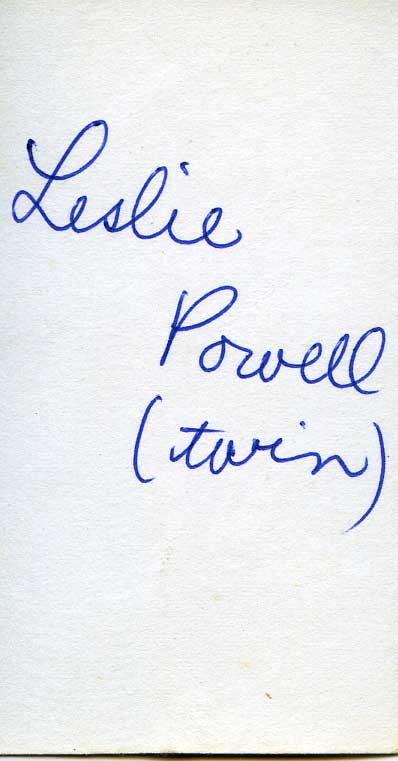 Leslie
Powell
(twin)